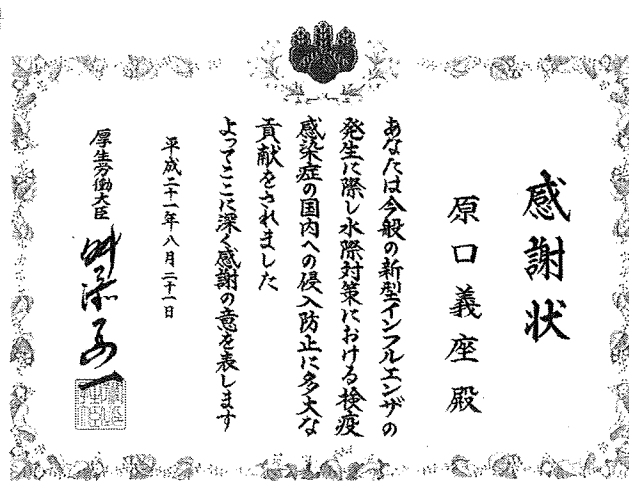 感謝状
原口義座殿
あなたは今般の新型インフルエンザの
発生に際し水際対策における検疫
感染症の国内への侵入防止に多大な
貢献をされました
よってここに深く感謝の意を表します
平成二十一年八月二十一日
厚生労働大臣 舛添要一